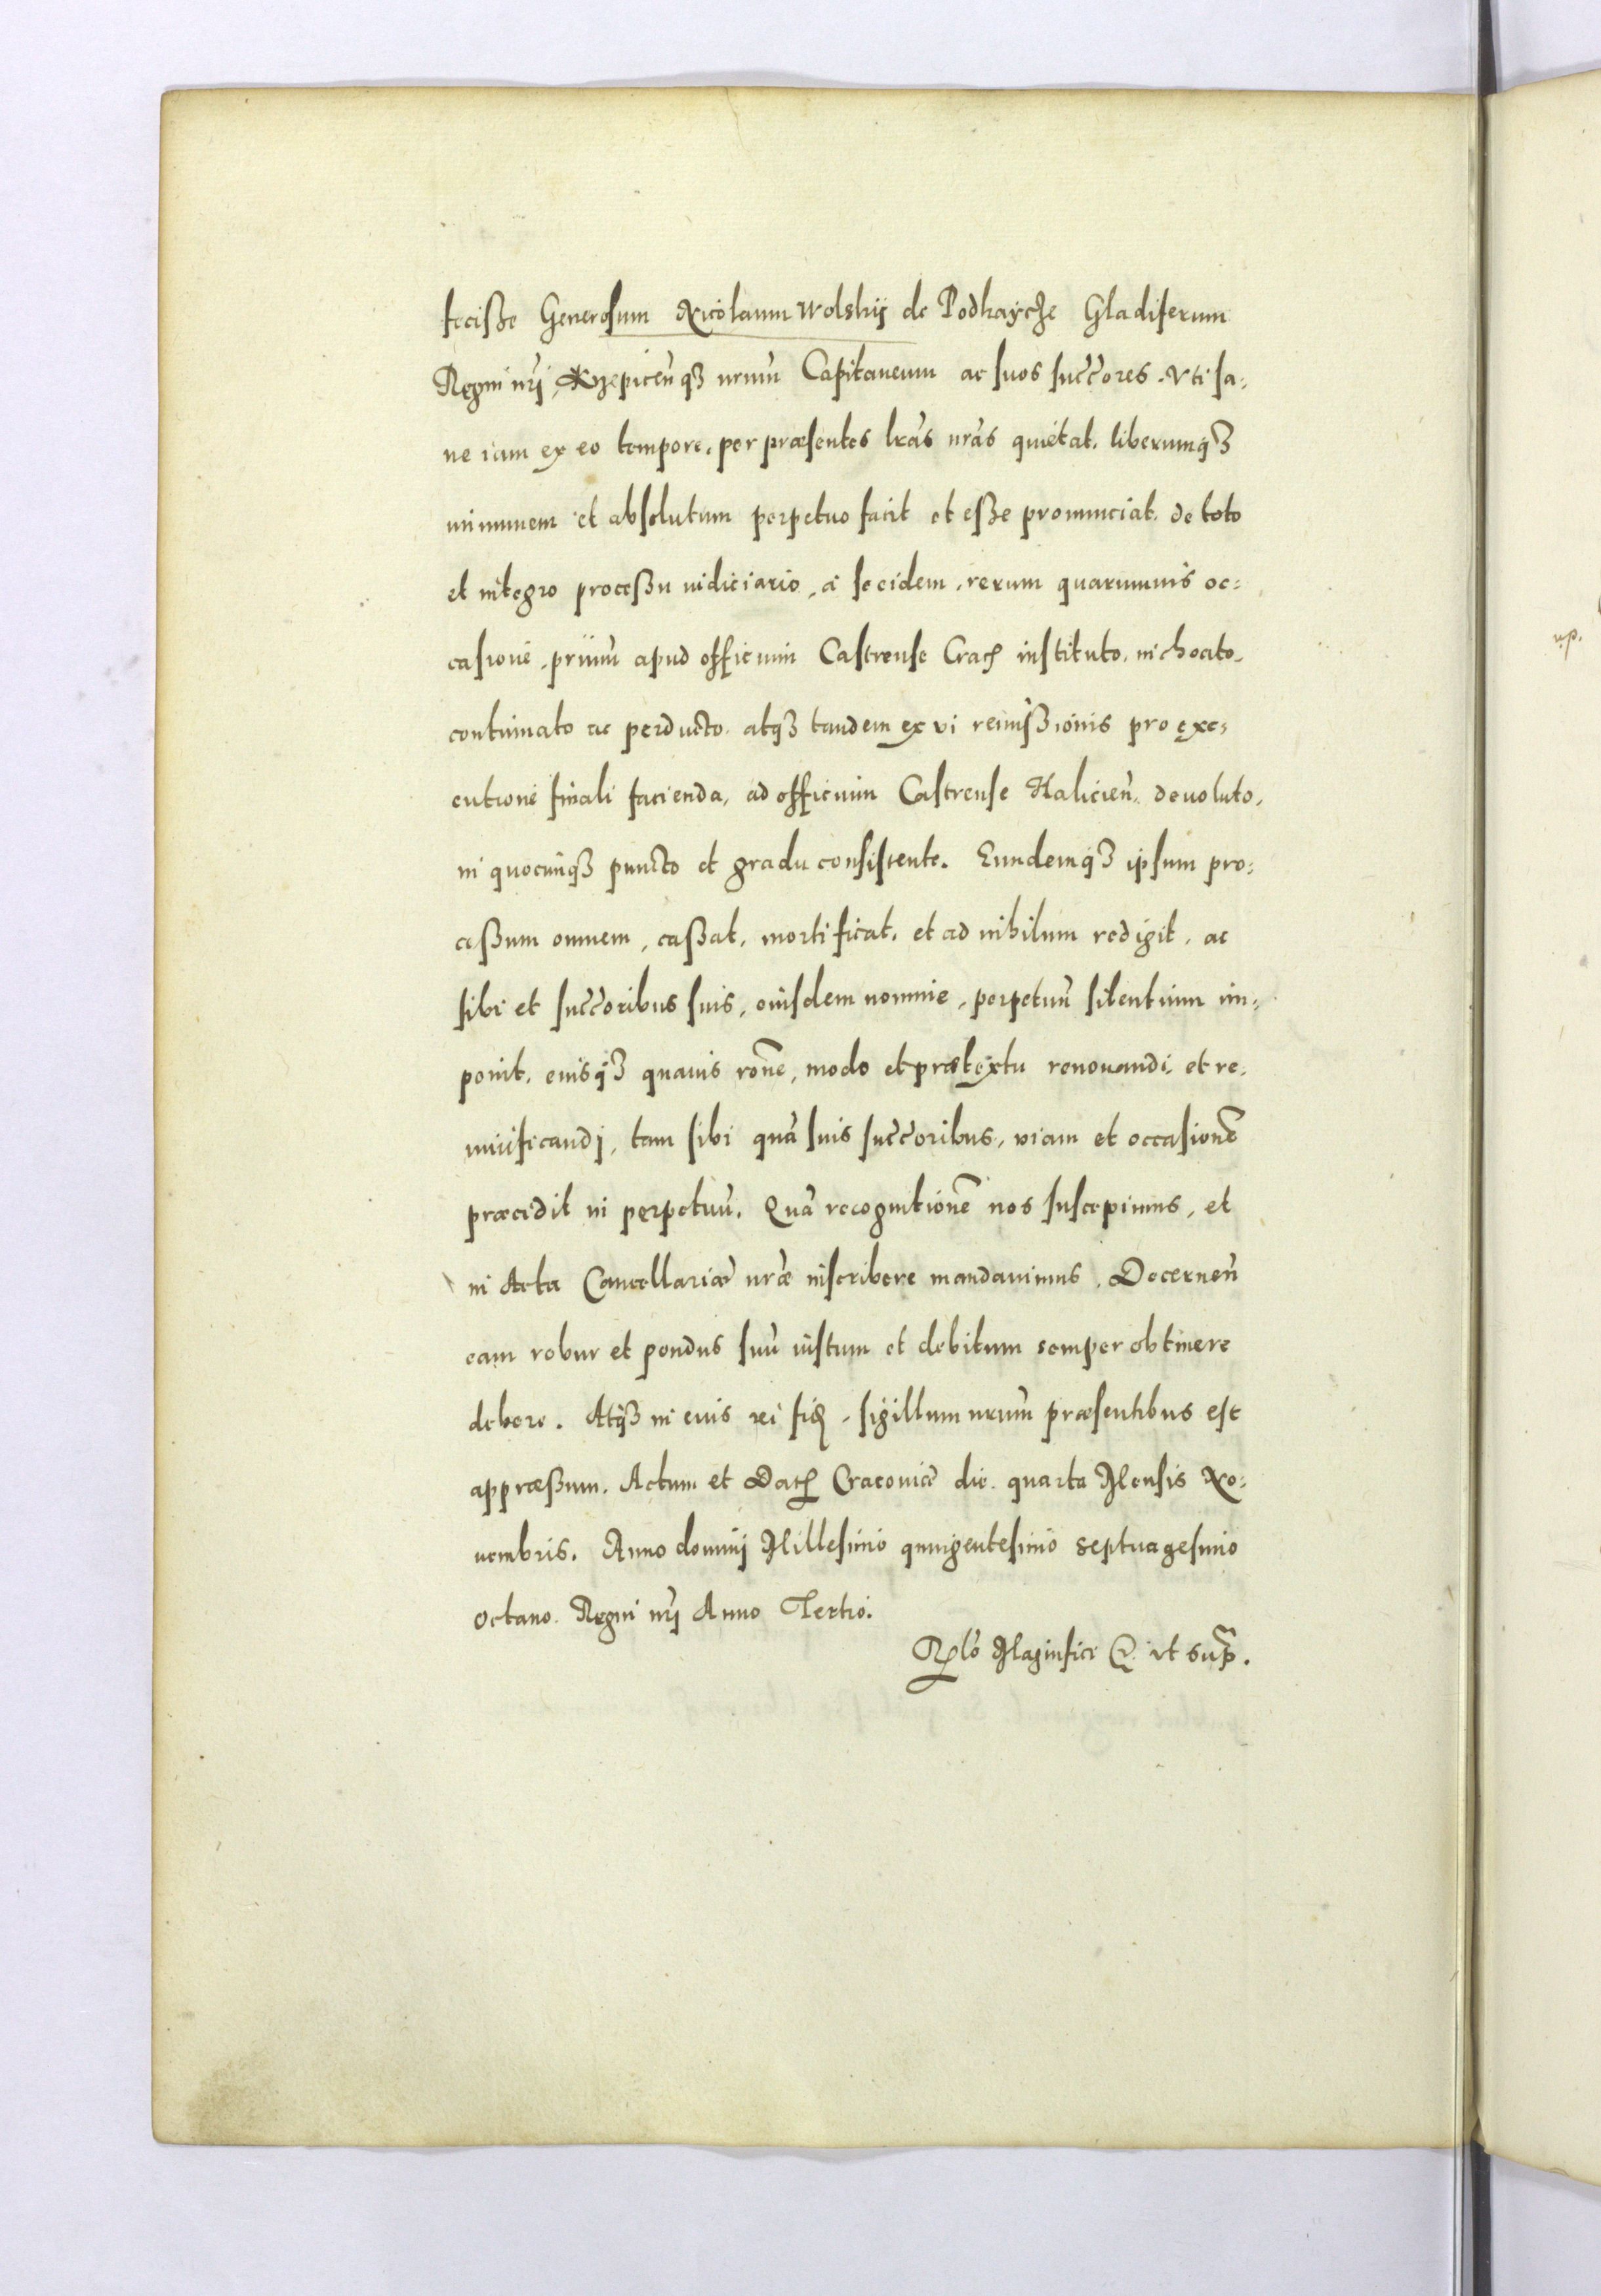 fecisze Generosum Nicolaum Wolskij de Podhaycze Gladiferum
Regni nrį Krzepiceñqȝ nrum̃ Capitaneum ac suos succ̃ores. Vti sa:
ne iam ex eo tempore, per præsentes lr̃as nr̃as quietat, liberumqȝ
immunem et absolutum perpetuo facit et esze pronunciat, de toto
et integro proceszu iudiciario, a se eidem, rerum quarumuis oc:
casione, primũ apud officium Castrense Crac̃ instituto, inchoato,
continuato ac perducto, atqȝ tandem ex vi remiszionis pro exe:
cutione finali facienda, ad officium Castrense Halicieñ deuoluto,
in quocunqȝ puncto et gradu consistente. Eundemqȝ ipsum pro:
ceszum omnem, caszat, mortificat, et ad nihilum redigit, ac
sibi et succ̃oribus suis, eiusdem nomine, perpetuũ silentium im:
ponit, eiusqȝ quauis ron̄e, modo et prætextu renouandi et re:
uiuificandj, tam sibi quã suis succ̃oribus, viam et occasionẽ
præcidit in perpetuũ. Quã recognitionẽ nos suscepimus, et
in Acta Cancellariæ nr̃æ inscribere mandauimus. Decerneñ
eam robur et pondus suũ iustum et debitum semper obtinere
debere. Atqȝ in eius rei fid̃, sigillum nrum̃ præsentibus est
appræszum. Actum et Dat̃ Cracouiæ die quarta Mensis No:
uembris. Anno dominj Millesimo quingentesimo septuagesimo
octauo. Regni nr̃j Anno Tertio.
Rel̃o Magnifici &c̃ vt sup̃.
up.